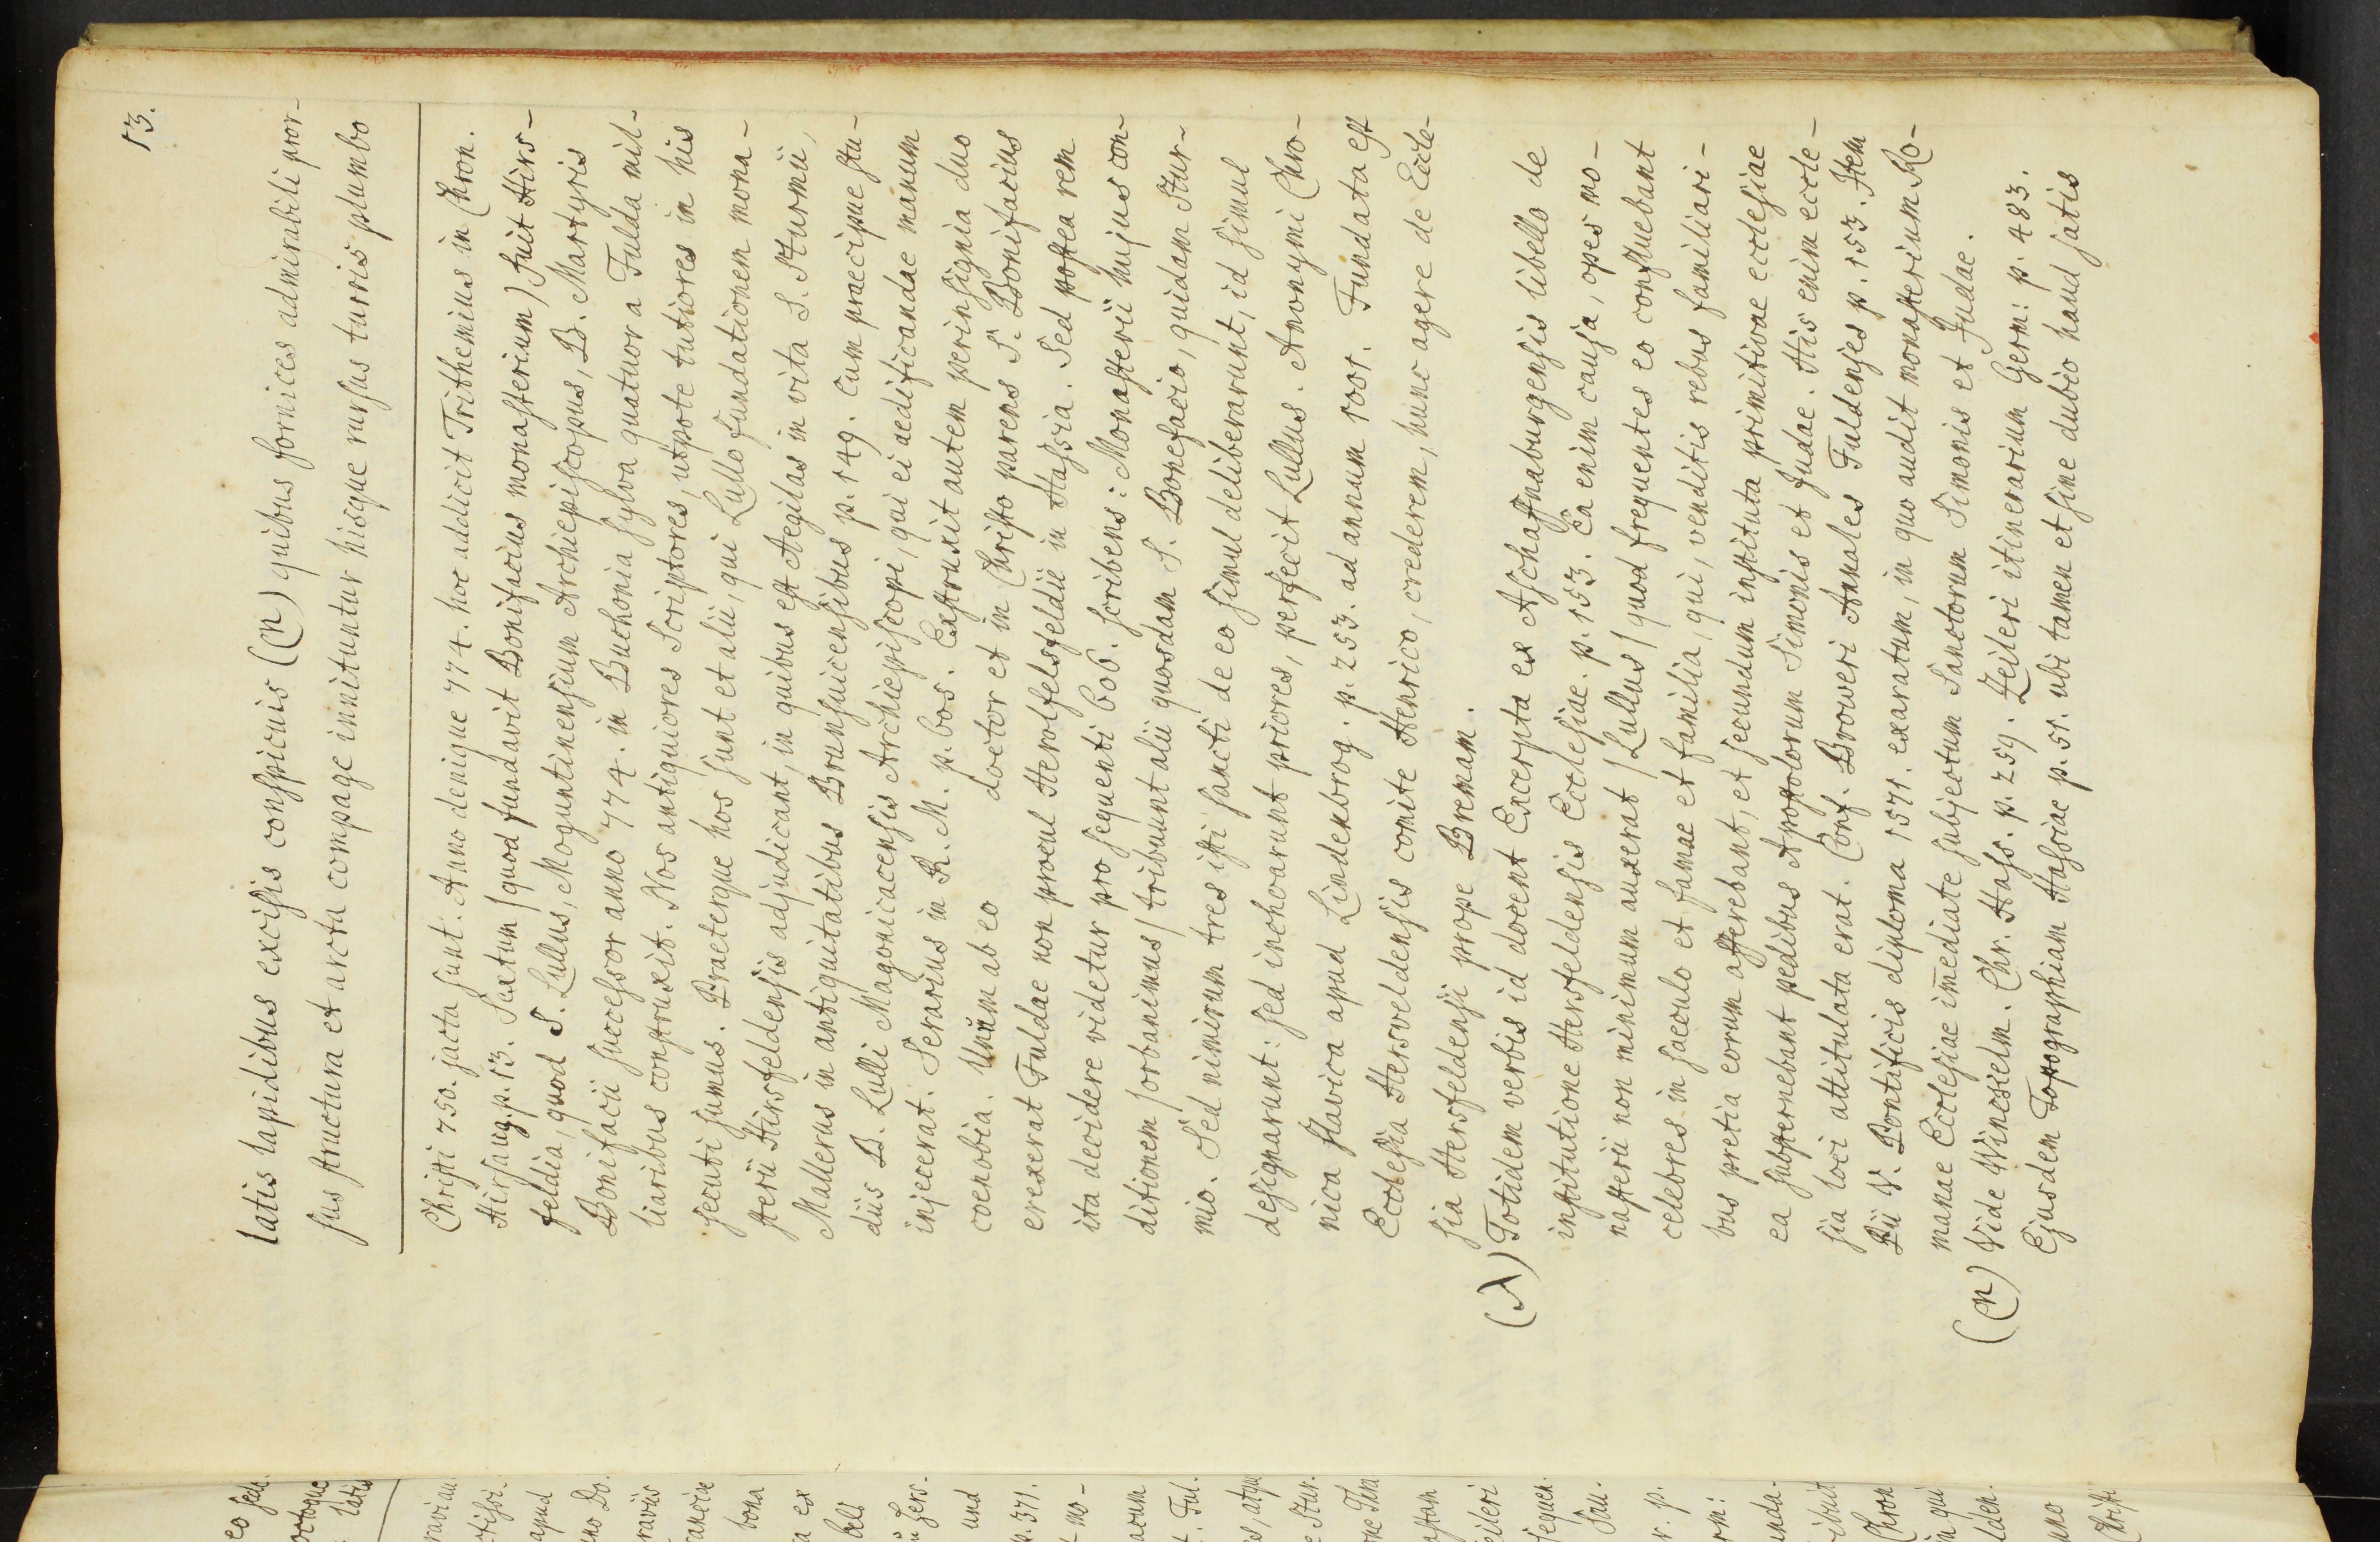 13.
latis lapidibus excisis conspicuis (m) quibus fornices admirabili pror-
sus structura et arcta compage innituntur hisque rursus turris plumbo
Christi 750. jacta sunt. Anno denique 774. hoc addicit Trithemius in Chron.
Hirsaug. p. 13. Sextum (quod fundavit Bonifacius monasterium) fuit Hirs-
feldia, quod S. Lullus, Moguntinensium Archiepiscopus, B. Martyris
Bonifacii successor anno 774. in Buchonia sylva quatuor a Fulda mil-
liaribus construxit. Nos antiquiores Scriptores, utpote tutiores in his
secuti sumus. Praeterque hos sunt et alii, qui Lullo fundationem mona-
sterii Hirsfeldensis adjudicant, in quibus est Aegilas in vita S. Sturmii,
Mallerus in antiquitatibus Brunsuicensibus p. 149. Cum praecipue stu-
diis B. Lulli Magonicacensis Archiepiscopi, qui ei aedificandae manum
injecerat. Serarius in R. M. p. 605. Exstruxit autem perinsignia duo
coenobia. Unum ab eo doctor et in Christo parens S. Bonifacius
erexerat Fuldae non procul Herolfelsfeldii in Hassia. Sed postea rem
ita decidere videtur pro sequenti 606. scribens: Monasterii hujus con-
ditionem (orbanimus) tribuunt alii quosdam S. Bonefacio, quidam Stur-
mio. Sed nimirum tres isti sancti de eo simul deliberarunt, id simul
designarunt: sed inchoarunt priores, perfecit Lullus. Anonymi Chro-
nica slavica apud Lindenbrog. p. 253. ad annum 1001. Fundata est
Ecclesia Hersveldensis comite Henrico, crederem, hunc agere de Eccle-
sia Hersfeldensi prope Bremam.
(λ) Totidem verbis id docent Excerpta ex Aschaffnaburgensis libello de
institutione Hersfeldensis Ecclesiae. p. 153. Ea enim causa, opes mo-
nasterii non minimum auxerat (Lullus) quod frequentes eo confluebant
celebres in saeculo et famae et familia, qui, venditis rebus familiari-
bus pretia eorum afferebant, et secundum instituta primitivae ecclesiae
ea substernebant pedibus Apostolorum Simonis et Judae. His enim eccle-
sia loci attitulata erat. Conf. Broweri Annales Fuldenses p. 153. Item
Pii V. Pontificis diploma 1571. exaratum, in quo audit monasterium Ro-
manae Ecclesiae im̅ediate subjectum Sanctorum Simonis et Judae.
(m) Vide Winckelm. Chr. Hass. p. 259. Zeileri itinerarium Germ: p. 483.
Ejusdem Topographiam Hassiae p. 51. ubi tamen et sine dubio haud satis